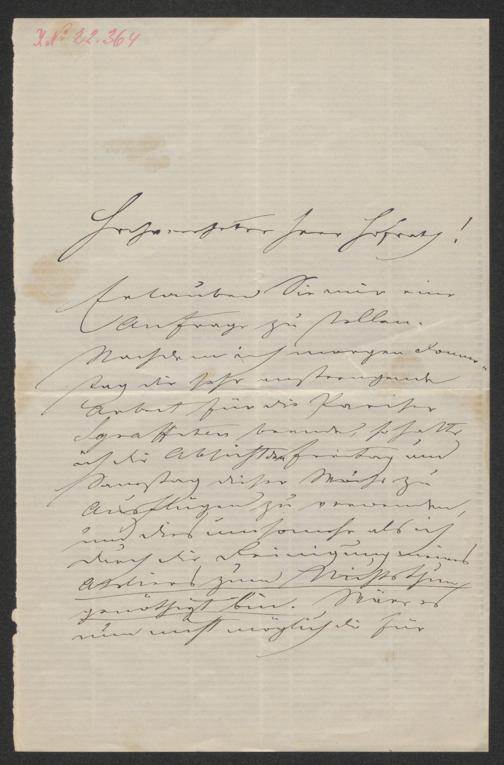 I. N. 22.364
Hochverehrter Herr Hofrath!
Erlauben Sie mir eine
Anfrage zu stellen.
Nachdem ich morgen Donner-
stag die sehr anstrengende
Arbeit für die Pariser
Sgraffiten beende, so hatte
ich die Absicht den Freitag und
Samstag dieser Woche zu
Ausflügen zu verwenden,
und dies umsomehr als ich
durch die Reinigung meines
Ateliers zum Nichtsthun
genöthigt bin. Wäre es
nun nicht möglich die für